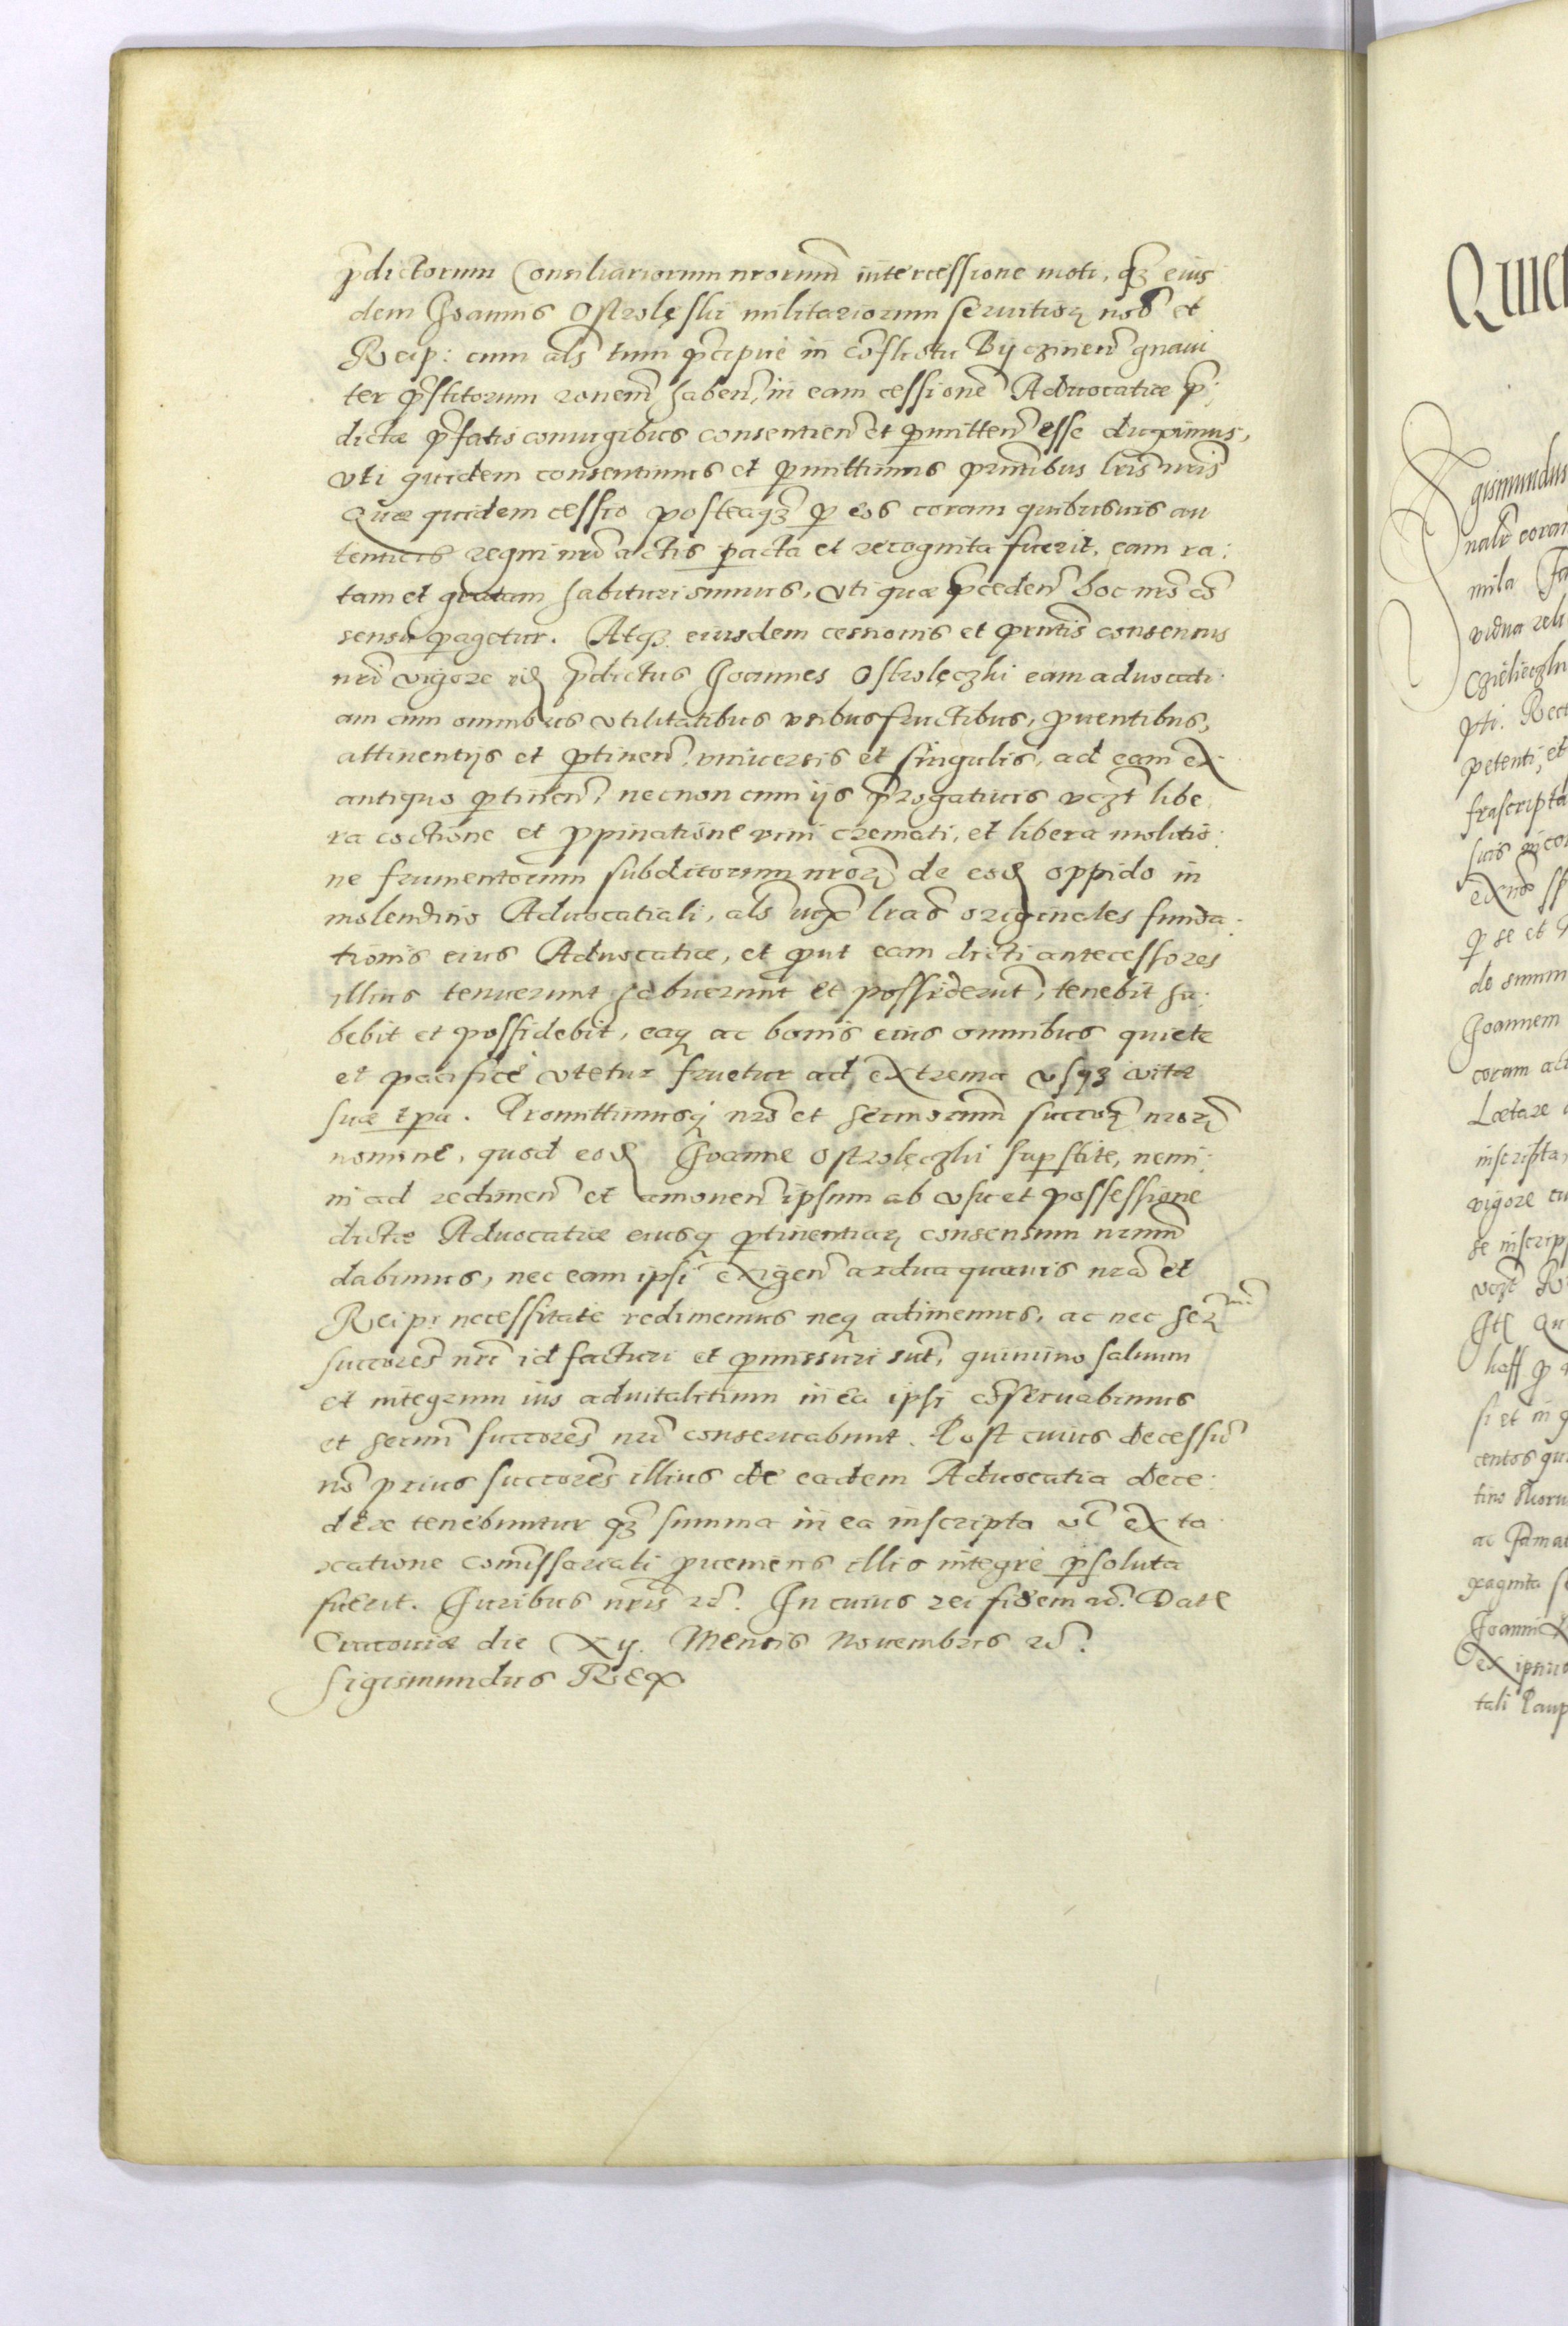 p̃dictorum Consiliariorum nrorum̃ intercessione moti, qʒ̃ eius
dem Joannis Ostrolęski militariorum seruitioꝝ nob̃ et
Reip: cum als̃ tum p̃cipue in cõflictu Byczinen̄ gnaui
ter p̃stitorum ronem̃ haben̄, in eam cessionẽ Aduocatiæ p̃:
dictæ p̃fatis coniugibus consentien̄ et ꝑmitten̄ esse duximus,
vti quidem consentimus et ꝑmittimus pñtibus lr̃is nr̃is
Quæ quidem cessio posteaqʒ̃ ꝑ eos coram quibusuis au
tenticis regni nri actis ꝑacta et recognita fuerit, eam ra:
tam et gratam habituri sumus, vti quæ p̃ceden̄ hoc nr̃o cõ
sensu ꝑagetur. Atqʒ eiusdem cessionis et pñtis consensus
nr̃i vigore idꝫ p̃dictus Joannes Ostrolęczki eam aduocati
am cum omnibus vtilitatibus vsibus fructibus, ꝓuentibus,
attinentijs et ꝑtinen̄, vniuersis et singulis, ad eam ex
antiquo ꝑtinen̄, necnon cum ijs p̃rogatiuis vcʒt libe
ra coctione et ꝓpinatione vini cremati, et libera molitio:
ne frumentorum subditorum nroꝝ̃ de eodꝫ oppido in
molendino Aduocatiali, als̃ iux̃ lr̃as originales funda:
tionis eius Aduocatiæ, et ꝓut eam dicti antecessores
illius tenuerunt habuerunt et possiderũt, tenebit ha:
bebit et possidebit, eaqꝫ ac bonis eius omnibus quiete
et pacifice vtetur fruetur ad extrema vsqʒ vitæ
suæ tp̃a. Promittimusqꝫ nr̃o et sermorum̃ succoꝝ̃ nroꝝ̃
nomine, quod eodꝫ Joanne Ostrolęczki suꝑstite, nemi:
ni ad redimen̄ et amouen̄ ipsum ab vsu et possessione
dictæ Aduocatiæ eiusqꝫ ꝑtinentiaꝝ consensum nrum̃
dabimus, nec eam ipsi exigen̄ ardua quauis nr̃a et
Reip: necessitate redimemus neqꝫ adimemus, ac nec ser̃mi
succores̃ nri id facturi et ꝑmissuri sũt, quinimo saluum
et integrum ius aduitalitium in ea ipsi cõseruabimus
et sermi succores̃ nri conseruabunt. Post cuius decessũ
nõ prius succores̃ illius de eadem Aduocatia dece:
dere tenebuntur qʒ̃ summa in ea inscripta vl̃ ex ta
xatione comissariali ꝓueniens illis integre ꝑsoluta
fuerit. Juribus nr̃is rc̃. In cuius rei fidem rc̃. Dat
Cracouiæ die xij. Mensis Nouembris rc̃.
Sigismundus Rex
Quiet
gismundus
nalr̃ coram
mila
vidua reli
pti. Rect
petenti, et
frascripta
suis
ꝑ se et
de summ
Joannem
coram act
Lætare
inscripta,
vigore
se inscrip
vcʒt
Itꝫ Qu
haff ꝑ
si et in
centos qui
tino
ac
Joanni
ex ipsius
tali